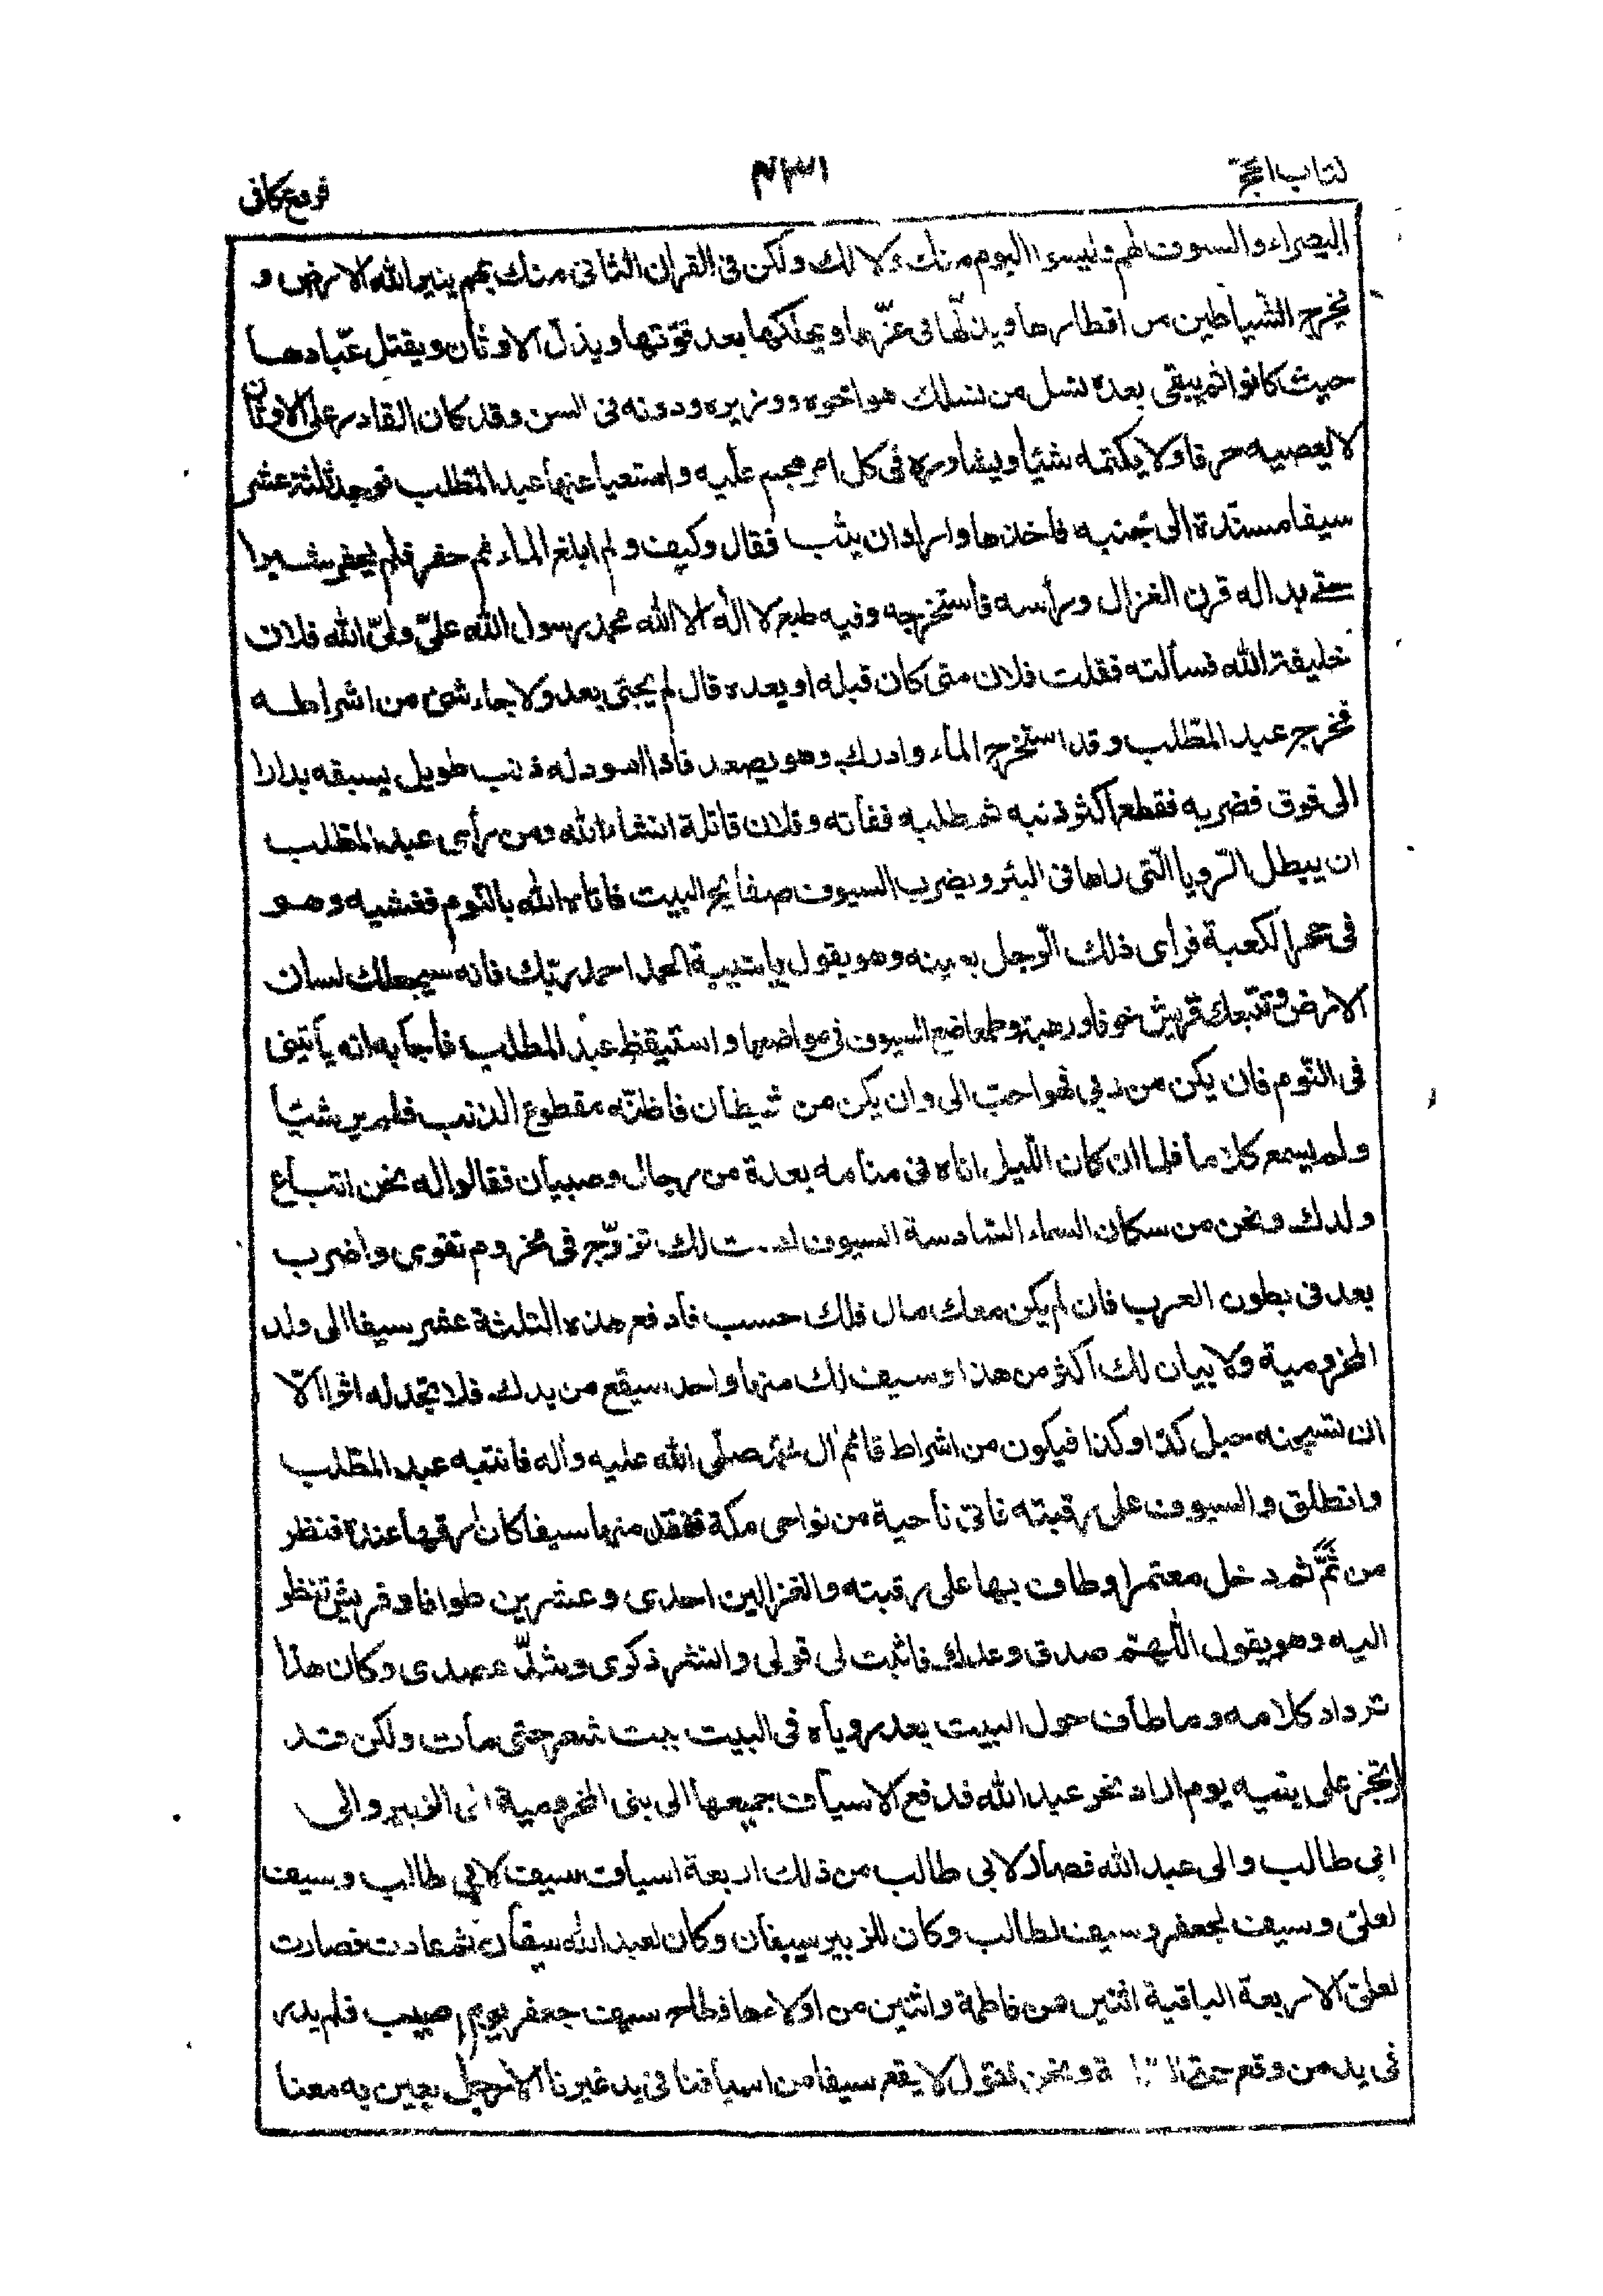 كتاب الحج ٤٣١ فروع كافى
البصراء والسيوف لهم وليسوا اليوم منك ولا لك ولكن فى القرن الثانى منك بهم ينير الله الارض و
يخرج الشياطين من اقطارها ويذلها فى عزّها ويهلكها بعد قوّتها ويذلّ الاوثان ويقتل عبّادها
حيث كانوا ثم يبقى بعده نسل من نسلك هو اخوه ووزيره ودونه فى السن وقد كان القادر على الاوثان
لا يعصيه حرفا ولا يكتمه شيئا ويشاوره فى كل امر هجم عليه واستعيا عنها عبد المطلب فوجد ثلثة عشر
سيفا مسندة الى جنبه فاخذها واراد ان يثب فقال وكيف ولم ابلغ الماء ثم حفر فلم يحفر شبرا
حتى بدا له قرن الغزال ورأسه فاستخرجه وفيه طبع لا اله الا الله محمد رسول الله علىّ ولىّ الله فلان
خليفة الله فسألته فقلت فلان متى كان قبله او بعده قال لم يجئ بعد ولا جاء شئ من اشراطه
فخرج عبد المطلب وقد استخرج الماء وادرك وهو يصعد فاذا اسود له ذنب طويل يسبقه بدارا
الى فوق فضربه فقطع اكثر ذنبه ثم طلبه ففاته وفلان قاتله انشاء الله ومن رأى عبد المطلب
ان يبطل الرّويا الّتى راها فى البئر ويضرب السيوف صفايح البيت فاتاه الله بالنّوم فغشيه وهو
فى حجر الكعبة فراى ذلك الرّجل بعينه وهو يقول يا شيبة الحمد احمد ربّك فانه سيجعلك لسان
الارض وتتبعك قريش خوفا ورهبة وطمعا ضع السيوف فى مواضعها واستيقظ عبد المطلب فأجابه انه يأتينى
فى النّوم فان يكن من ربى فهو احبّ الى وان يكن من شيطان فاظنّه مقطوع الذنب فلم ير شيئا
ولم يسمع كلاما فلما ان كان اللّيل اتاه فى منامه بعدة من رجال وصبيان فقالوا له نحن اتباع
ولدك ونحن من سكان السماء السّادسة السيوف ليست لك تزوّج فى مخزوم تقوى واضرب
بعد فى بطون العرب فان لم يكن معك مال فلك حسب فادفع هذه الثلثة عشر سيفا الى ولد
المخزومية ولا بيان لك اكثر من هذا وسيف لك منها واحد سيقع من يدك فلا تجد له اثرا الّا
ان يسجنه جبل كذا وكذا فيكون من اشراط قائم آل محمّد صلّى الله عليه وآله فانتبه عبد المطّلب
وانطلق والسيوف على رقبته فاتى ناحية من نواحى مكة ففقد منها سيفا كان ارقها عنده فنظر
من ثَمَّ ثم دخل معتمرا وطاف بها على رقبته والغزالين احدى وعشرين طوافا وقريش تنظر
اليه وهو يقول اللّهمّ صدق وعدك فاثبت لى قولى وانتشر ذكرى وشدّ عصدى وكان هذا
ترداد كلامه وما طاف حول البيت بعد رؤياه فى البيت ببيت شعر حتى مات ولكن قد
ارتجز على بنيه يوم اراد نحر عبد الله فدفع الاسياف جميعها الى بنى المخزومية الى الزبير والى
ابى طالب والى عبد الله فصار لابى طالب من ذلك اربعة اسياف سيف لابى طالب وسيف
لعلىّ وسيف لجعفر وسيف لطالب وكان للزبير سيفان وكان لعبد الله سيفان ثم عادت فصارت
لعلىّ الاربعة الباقية اثنين من فاطمة واثنين من اولادها فطاح سيف جعفر يوم اصيب فلم يدر
فى يد من وقع حتى ونحن نقول لا يقع سيفا من اسيافنا فى يد غيرنا الا رجل يعين به معنا